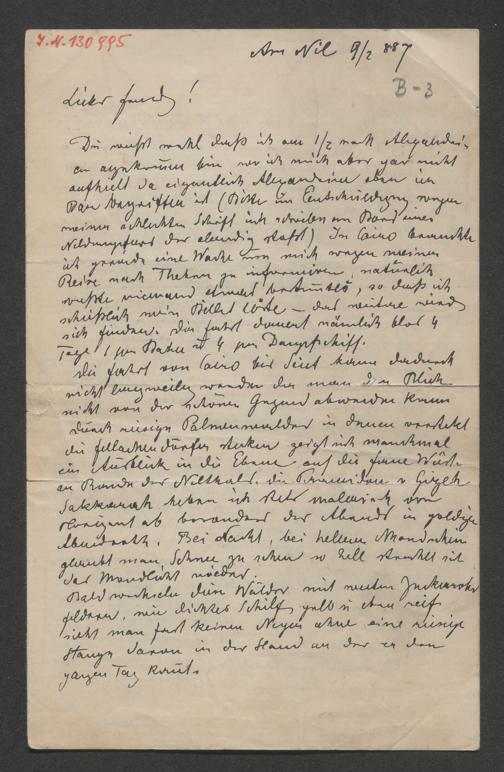 J.N. 130995
Am Nil 9/2 887
B-3
Lieber Freund!
Du weißt wohl daß ich am 1/2 nach Alexandri-
en angekommen bin wo ich mich aber gar nicht
aufhielt da eigentlich Alexandrien eben ein
(Bitte um Entschuldigung wegen
meiner schlechten Schrift ich schreibe am Bord eines
Nildampfers der elendig stoßt) In Cairo brauchte
ich gerade eine Woche um mich wegen meiner
Reise nach Theben zu informiren, natürlich
wußte niemand etwas bestimmtes, so daß ich
schließlich mein Billet löste – das weitere wird
sich finden. Die Fahrt dauert nämlich blos 4
Tage 1 per Bahn u 4 per Dampfschiff.
Die Fahrt von Cairo bis Siut kann dadurch
nicht langweilig werden da man den Blick
nicht von der schönen Gegend abwenden kann
durch riesige Palmenwälder in denen versteckt
die Fellachendörfer stecken zeigt sich manchmal
ein Ausblick in die Ebene auf die ferne Wüste
am Rande des Nilthals. die Pyramiden v Gizeh
Sakkarah heben sich stets malerisch vom
Horizont ab besonders des Abends in goldiger
Abendroth. Bei Nacht, bei hellem Mondschein
glaubt man Schnee zu sehen so hell strahlt sich
das Mondlicht wieder.
Bald wechseln die Wälder mit weiten Zuckerrohr
feldern, wie dichtes Schilf gelb u eben reif
sieht man fast keinen Neger ohne eine riesige
Stange davon in der Hand an der er den
ganzen Tag kaut.